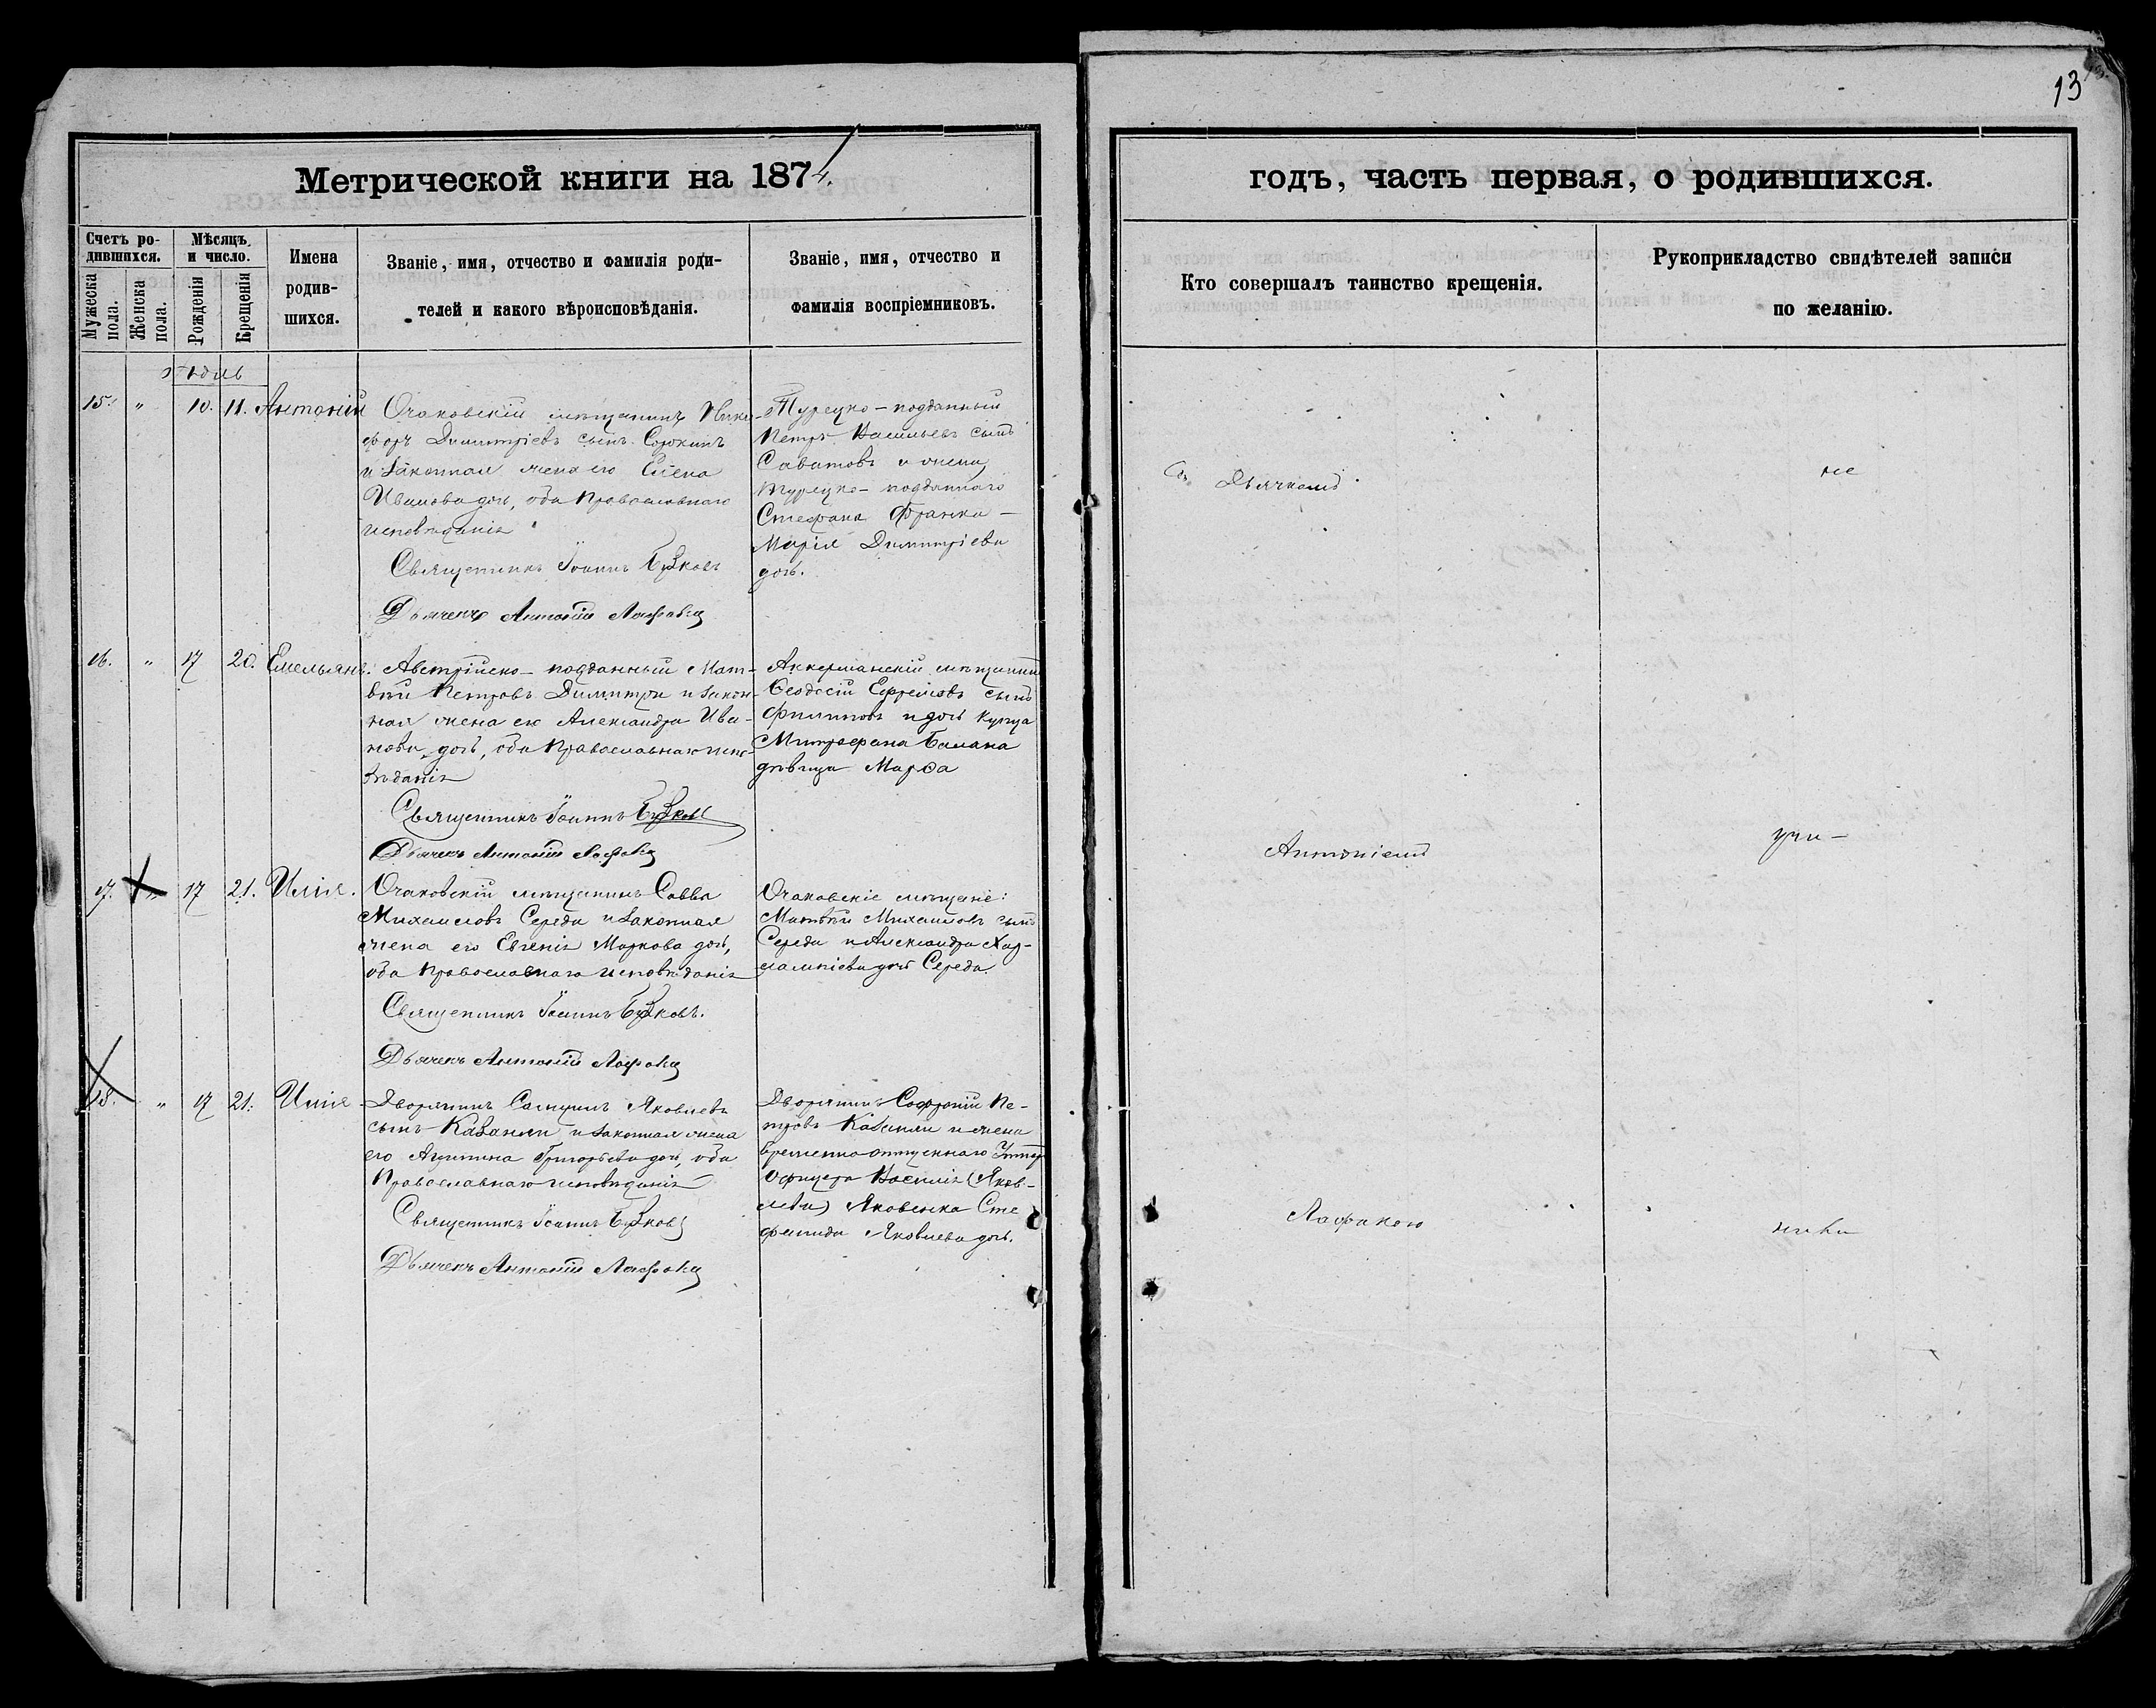 13
Метрической книги на 1874.
годъ, часть первая, о родившихся.
Счетъ ро-
дившихся.
Мужеска
пола.
Женска
пола.
Мѣсяцъ
и число.
Рожденія
Крещенія
Имена
родив-
шихся.
Званіе, имя, отчество и фамилія роди-
телей и какого вѣроисповѣданія.
Званіе, имя, отчество и
фамилія воспріемниковъ.
Кто совершалъ таинство крещенія.
Рукоприкладство свидѣтелей записи
по желанію.
15. " 10. 11. Антоній
Очаковскій мѣщанинъ Ники-
форъ Димитріевъ сынъ Сорокинъ
и законная жена его Елена
Иванова дочь, оба Православнаго
исповѣданія
Священникъ Іоаннъ
Дьячекъ Антоній
Турецко-подданный
Петръ Васильевъ сынъ
Саватовъ и жена
турецко-подданнаго
Стефана Франка-
Марія Димитріева
дочь.
16. " 17 20. Емельянъ.
Австрійско-подданный Мат-
вѣй Петровъ Димитри и закон-
ная жена его Александра Ива-
нова дочь, оба Православнаго испо-
вѣданія
Священникъ Іоаннъ
Дьячекъ Антоній
Аккерманскій мѣщанинъ
Ѳеодосій Ефремовъ сынъ
Филиповъ и дочь купца
Митрофана Балана
дѣвица Марѳа
17. " 17 21. Илія.
Очаковскій мѣщанинъ Савва
Михаиловъ Середа и законная
жена его Евгенія Маркова дочь,
оба Православнаго исповѣданія
Священникъ Іоаннъ
Дьячекъ Антоній
Очаковскіе мѣщане:
Матвѣй Михаиловъ сынъ
Середа и Александра Хар-
лампіева дочь Середа.
18. " 17 21. Илія
Дворянинъ Самуилъ Яковлевъ
сынъ Казанли и законная жена
его Акилина Григорьева дочь, оба
Православнаго исповѣданія
Священникъ Іоаннъ
Дьячекъ Антоній
Дворянинъ Софроній Пе-
тровъ Казанли и жена
временно отпускнаго Унтер
Офицера Василія (Яков-
лева) Яковенка Сте
фанида Яковлева дочь.
Съ Дьячкомъ
Антоніемъ
не
учи-
нили